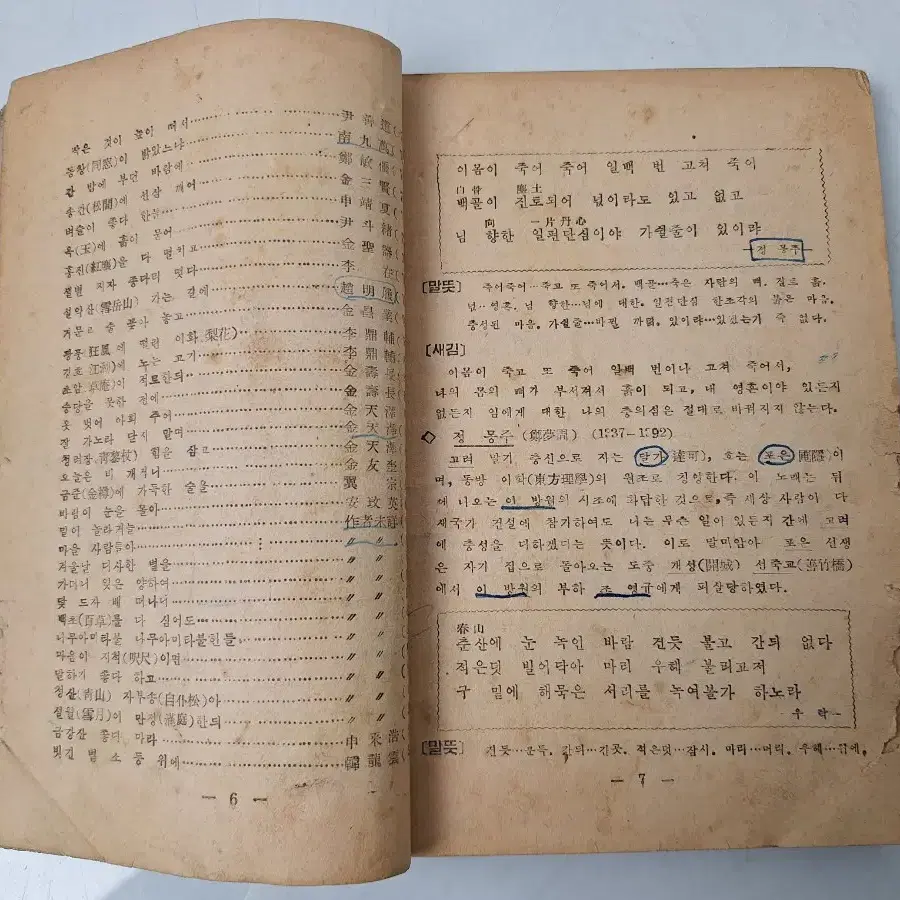 작은 것이 높이 떠서 尹善道
동창(同窓)이 밝았느냐 南九萬
간 밤에 부던 바람에 鄭敏僑
송간(松間)에 선잠 깨어 金三賢
벼슬이 좋다 한들 申靖夏
옥(玉)에 흙이 묻어 尹斗緖
홍진(紅塵)을 다 떨치고 金聖器
李
趙明履
설악산(雪岳山) 가는 길에
거문고 술 꽂아 놓고 金昌業
광풍(狂風)에 떨린 이화(梨花) 李鼎輔
강호(江湖)에 노는 고기 李鼎輔
초암(草庵)이 적료한듸 金壽長
金壽長
꽃 벗어 아희 주어 金天澤
잘 가노라 닫지 말며 金天澤
청려장(靑藜杖) 힘을 삼고
오늘은 비 개거니 金友奎
금준(金樽)에 가득한 술을
바람이 눈을 몰아 安玫英
작者未詳
마을 사람들아 〃
겨울날 다사한 볕을 〃
〃
닻 드자 배 떠나니 〃
백초(百草)를 다 심어도 〃
나무아미타불 나무아미타불헌들 〃
마음이 지척(咫尺)이면 〃
말하기 좋다 하고 〃
청산(靑山) 자부송(自仆松)아 〃
설월(雪月)이 만정(滿庭)한듸 〃
금강산 좋다 마라 申采浩
韓龍雲
— 6 —
이몸이 죽어 죽어 일백 번 고쳐 죽어
白骨 塵土
백골이 진토되어 넋이라도 있고 없고
向 一片丹心
님 향한 일편단심이야 가쉴줄이 있이랴
—정 몽주—
[말뜻] 죽어죽어…죽고 또 죽어서. 백골…죽은 사람의 뼈. 진토 흙.
넋…영혼. 님 향한…님에 대한. 일편단심 한조각의 붉은 마음.
충성된 마음. 가쉴줄이…바뀔 까닭. 있이랴…있겠는가 즉 없다.
[새김]
이몸이 죽고 또 죽어 일백 번이나 고쳐 죽어서,
나의 몸의 뼈가 부서져서 흙이 되고, 내 영혼이야 있든지
없든지 임에게 대한 나의 충의심은 절대로 바뀌지지 않는다.
◇ 정 몽주 (鄭夢周) (1337—1392)
고려 말기 충신으로 자는 달가(達可), 호는 포은(圃隱)이
며, 동방 이학(東方理學)의 원조로 칭영한다. 이 노래는 뒤
에 나오는 이 방원의 시조에 화답한 것으로, 즉 세상 사람이 다
새국가 건설에 참가하여도 나는 무슨 일이 있든지 간에 고려
에 충성을 다하겠다는 뜻이다. 이로 말미암아 포은 선생
은 자기 집으로 돌아오는 도중 개성(開城) 선죽교(善竹橋)
에서 이 방원의 부하 조 영규에게 피살당하였다.
春山
춘산에 눈 녹인 바람 건듯 불고 간듸 없다
적은덧 빌어다아 마리 우해 불리고저
구 밑에 해묵은 서리를 녹여볼가 하노라
우 탁—
[말뜻] 건듯…문득. 간듸…간곳. 적은덧…잠시. 마리…머리. 우해…위에.
— 7 —